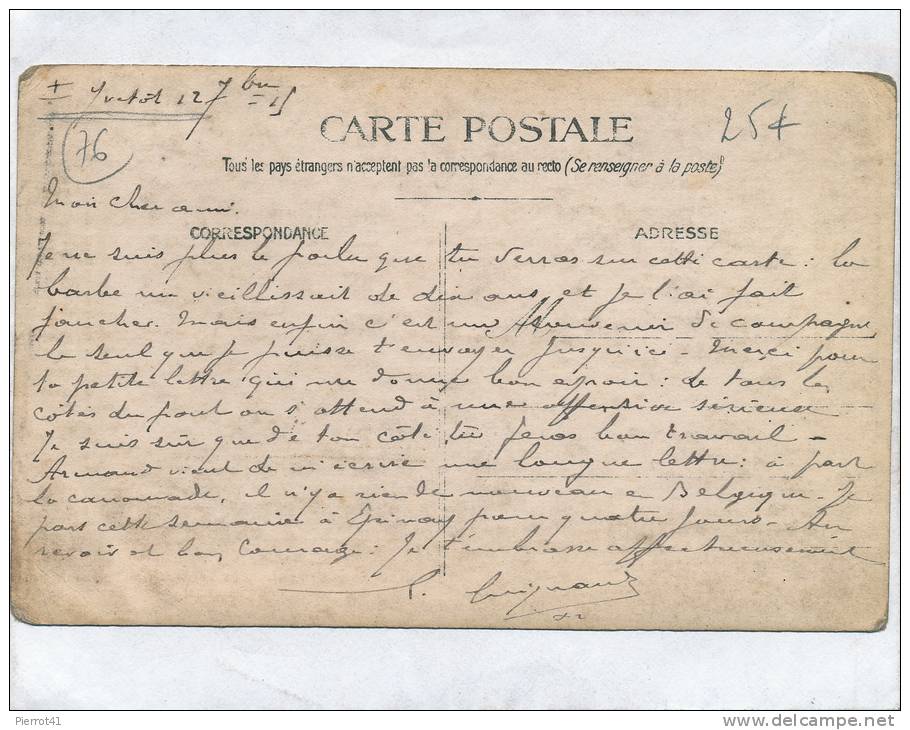 + Yvetot 12 7bre 15
76
25+
CARTE POSTALE
Tous les pays étrangers n'acceptent pas la correspondance au recto (Se renseigner à la poste)
Mon cher ami.
CORRESPONDANCE
ADRESSE
Je ne suis plus le poilu que tu verras sur cette carte : la
barbe me vieillissait de dix ans, et je l'ai fait
faucher. Mais enfin c'est un souvenir de campagne,
le seul que je puisse t'envoyer jusqu'ici - Merci pour
ta petite lettre qui me donne bon espoir : de tous les
côtés du front on s'attend à une offensive sérieuse -
Je suis sûr que de ton côté, tu feras bon travail -
Armand vient de m'écrire une longue lettre : à part
la canonnade, il n'y a rien de nouveau en Belgique. Je
pars cette semaine à Epinay pour quatre jours - Au
revoir et bon courage : Je t'embrasse affectueusement
Pierrot41
delcampe.net